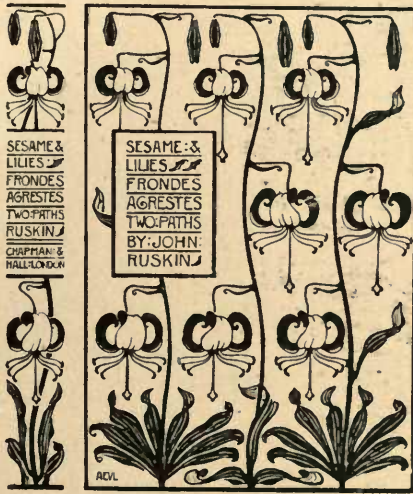 SESAME &
LILIES:
FRONDES
AGRESTES
TWO:PATHS
RUSKIN
CHAPMAN:&
HALL:LONDON
SESAME:&
LILIES
FRONDES
AGRESTES
TWO:PATHS
BY:JOHN:
RUSKIN
ACVL